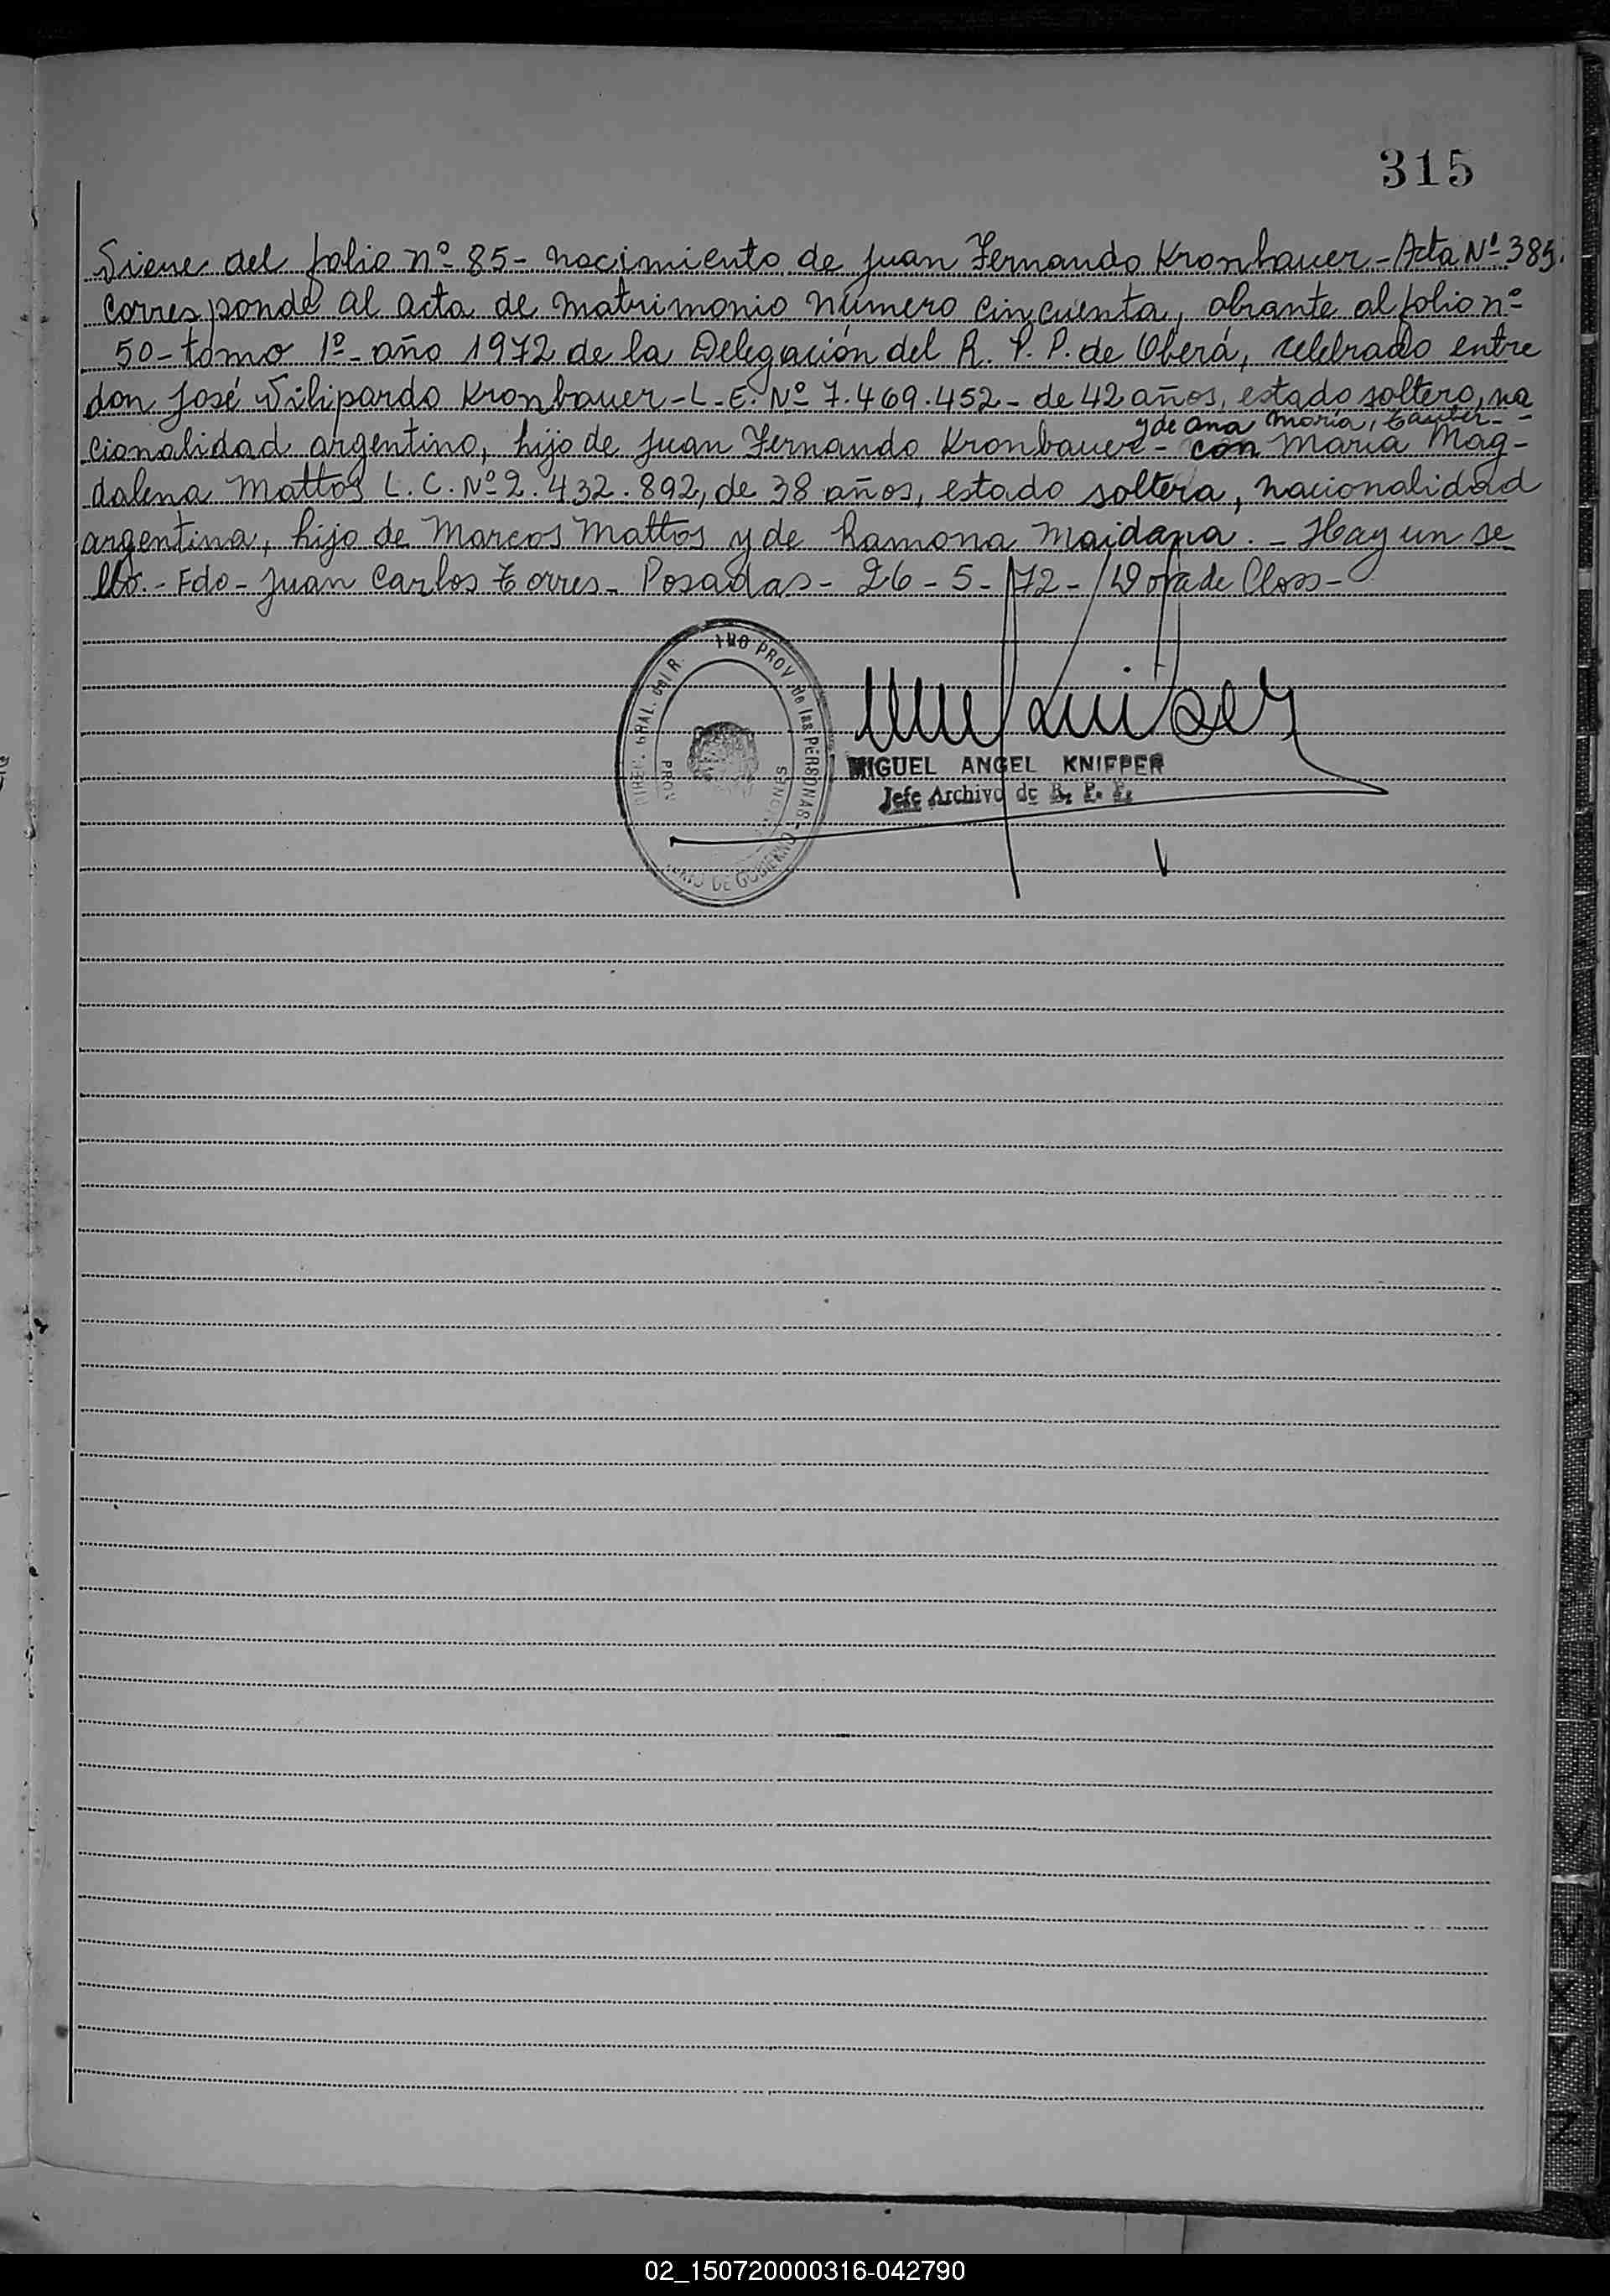 315
Viene del folio nº 85 - nacimiento de Juan Fernando Kronbauer - Acta Nº 385.
Corresponde al acta de matrimonio número cincuenta, obrante al folio nº
50 - tomo 1º - año 1972 de la Delegación del R. P. P. de Oberá, celebrado entre
don José Vilipardo Kronbauer - L. E. Nº 7.469.452 - de 42 años, estado soltero, na
y de Ana María, Tauber -
cionalidad argentino, hijo de Juan Fernando Kronbauer - con María Mag-
dalena Mattos L. C. Nº 2.432.892, de 38 años, estado soltera, nacionalidad
argentina, hijo de Marcos Mattos y de Ramona Maidana. - Hay un se-
llo. - Fdo - Juan Carlos Torres - Posadas - 26 - 5 - 72 - Dora de Closs -
GRAL. del R. PROV. de las PERSONAS
DE GOBIERNO
MIGUEL ANGEL KNIEPER
Jefe Archivo de R. P. P.
02_150720000316-042790